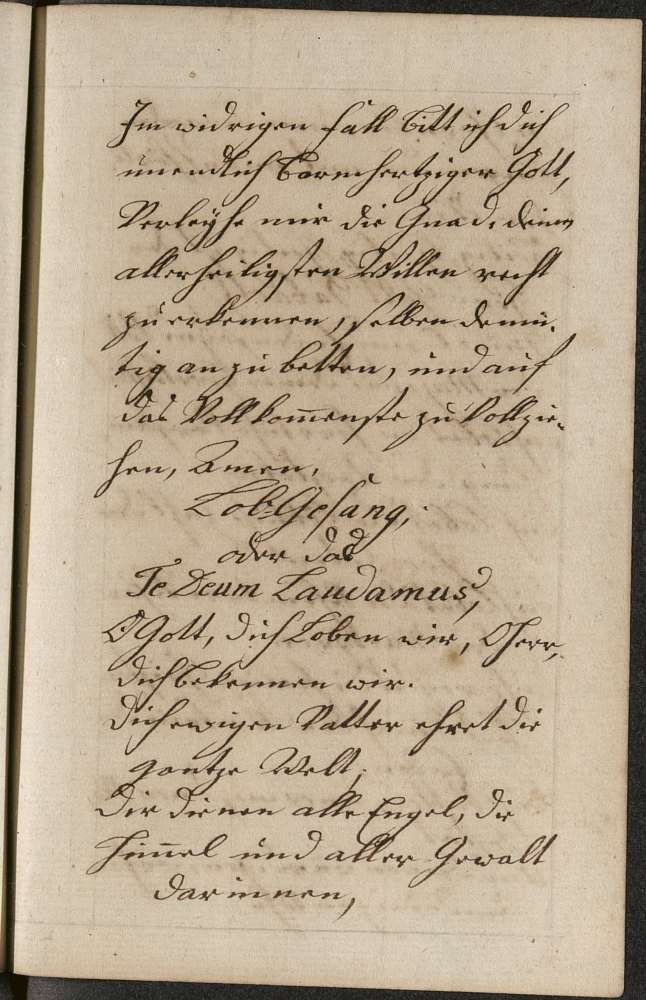 Im widrigen fall bitt ich dich
unendlich barmhertziger Gott,
Verleÿhe mir die Gnad, deinen
allerheiligsten Willen recht
zu erkennen, selben demü-
tig an zu betten, und auf
das Vollkom̅enste zu Vollzie-
hen, Amen,
Lob-Gesang,
oder das
Te Deum Laudamus,
O Gott, dich Loben wir, O herr,
dich bekennen wir.
dich ewigen Vatter ehret die
gantze Welt,
Dir dienen alle Engel, die
him̅el und aller Gewalt
darinnen,